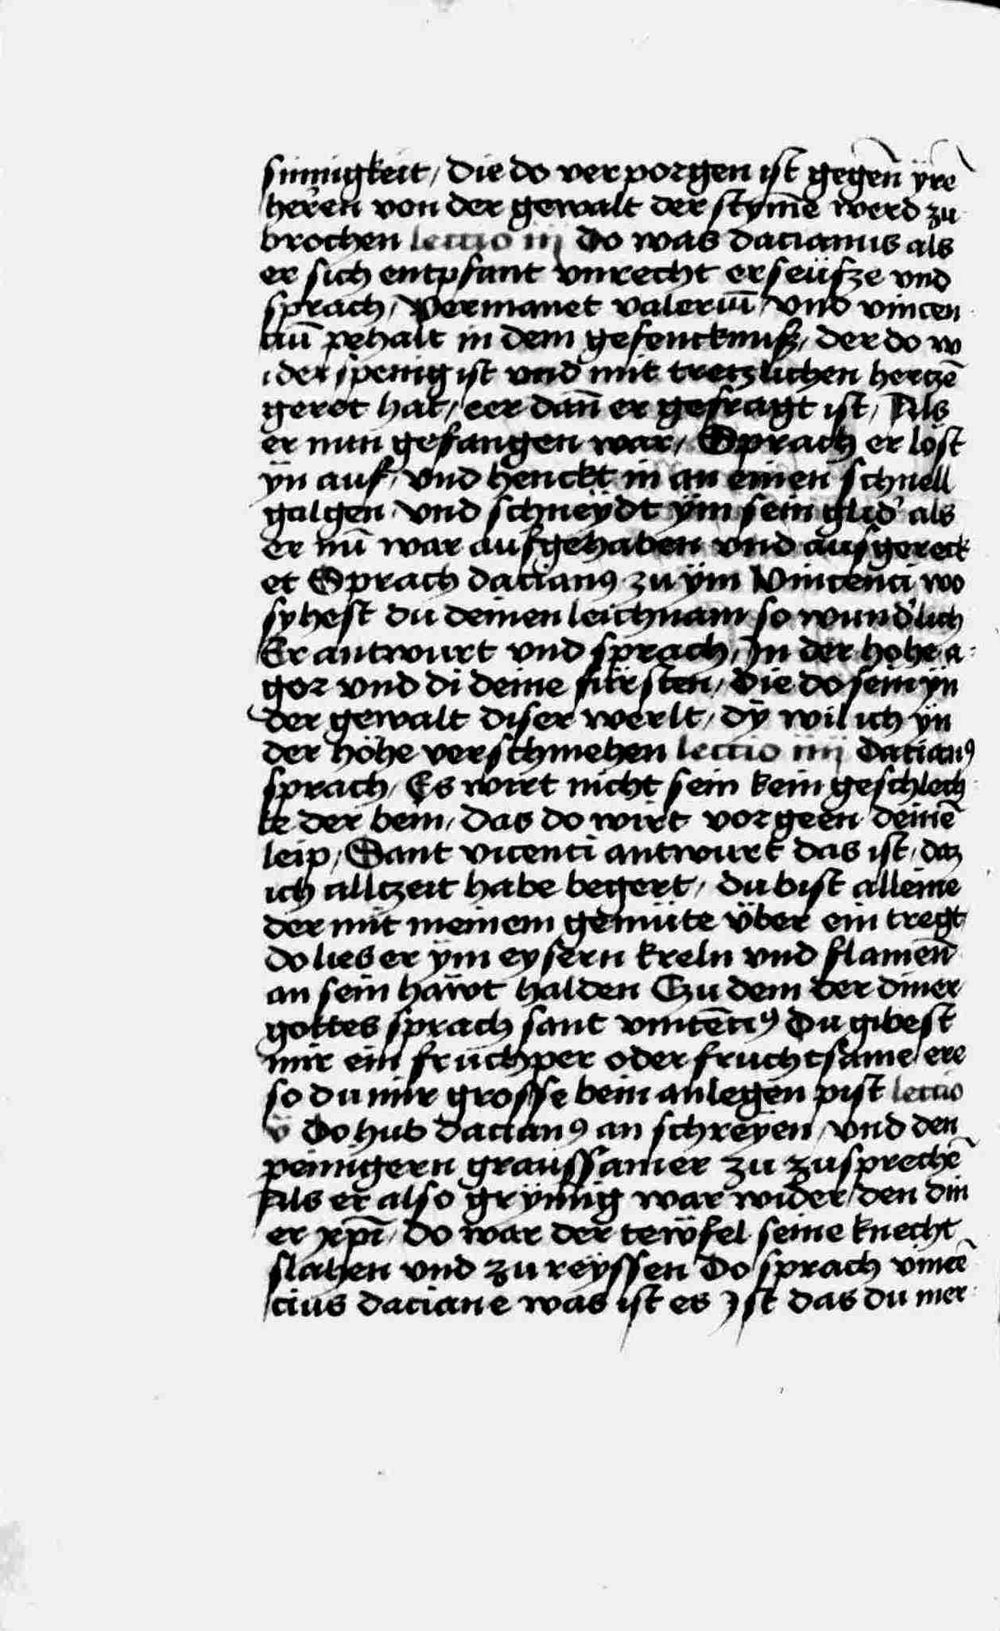 sinnigkeit / die do verporgen ist gegen̄ ÿrē
herren von der gewalt der stym̄e werd zu
brochen lectio iij Do was dacianus als
er sich entpfant vnrecht erseüfze vnd
sprach / Vermanet valeriū / vnd vincen
ciū pehalt in dem gefencknuß / der do w
ider spenig ist vnd mit tretzlichen hertzē
geret hat / eer dan̄ er gefragt ist / Als
er nun gefangen war / Sprach er löst
ÿn auf / vnd henckt in an einen schnell
galgen / vnd schneÿdt ÿm sein glid' als
er nū war aufgehaben vnd ausgereck
et Sprach dacianꝰ zu ÿm Vincenci wo
syhest du deinen leichnam so wund'lich
Er antwurt vnd sprach / In der hohe a
gor vnd di deine fürsten / die do sein ÿn
der gewalt diser werlt / dÿ wil ich ÿn
der höhe verschmehen lectio iiij Dacianꝰ
sprach / Es wirt nicht sein kein geschlech
te der bein / das do wirt vorgeen deinē
leip / Sant vicenti antwurt das ist / daz
ich alltzeit habe begert / du bist alleine
der mit meinem gemüte über ein tregt
do lies er ÿm eysern kreln vnd flamen̄
an sein haẅt halden Czu dem der diner
gottes sprach sant vincēciꝰ Du gibest
mir ein fruchper oder fruchtsame ere
so du mir grosse bein anlegen pist lectio
v Do hub dacianꝰ an schreÿen / vnd den
peinigern graussamer zu zusprechē
Als er also grÿm̄ig war wider den din
er xp̄i / do war der teẅfel seine knecht
slahen vnd zureÿssen Do sprach vincē
cius daciane was ist es Ist das du mer